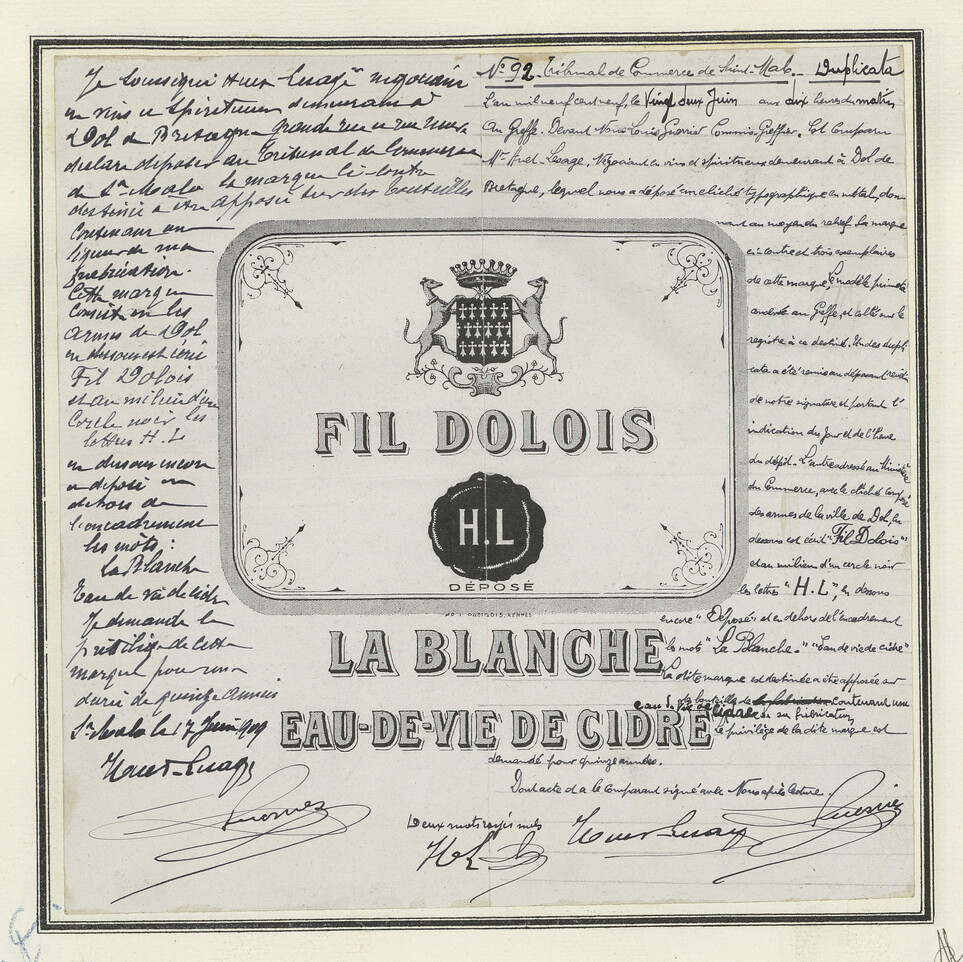 Je soussigné Huet-Lesage négociant
en vins et spiritueux demeurant à
Dol de Bretagne Grande rue
déclare déposer au Tribunal de Commerce
de St Malo la marque ci-contre
destinée à être apposée sur des bouteilles
contenant une
liqueur de ma
fabrication.
Cette marque
consiste en les
armes de Dol
en dessous est écrit
Fil Dolois
et au milieu d'un
cercle noir les
lettres H. L
en dessous encore
et déposé en
dehors de
l'encadrement
les mots :
La Blanche
Eau de vie de cidre
Je demande le
privilège de cette
marque pour une
durée de quinze années
St Malo le 17 Juin 1909
Huet-Lesage
Guerrier
No 92. Tribunal de Commerce de Saint-Malo. Duplicata
L'an mil neuf cent neuf, le Vingt deux Juin aux dix heures du matin
Au Greffe. Devant Nous Louis Guerrier Commis-Greffier. Est Comparu
Mr Huet-Lesage, Négociant en vins et spiritueux demeurant à Dol de
Bretagne, lequel nous a déposé un cliché typographique en métal, don-
nant au moyen du relief la marque
ci-contre et trois exemplaires
de cette marque, le modèle
au Greffe, et collé sur le
registre à ce destiné. Un des dupli
cata a été remis au déposant revêtu
de notre signature et portant l'
indication du Jour et de l'heure
du dépôt. L'autre adressé au Ministère
du Commerce, avec le cliché composé
des armes de la ville de Dol, en
dessous est écrit "Fil Dolois"
et au milieu d'un cercle noir
les lettres "H. L", en dessous
encore "Déposé" et en dehors de l'encadrement
les mots "La Blanche" "Eau de vie de cidre"
La dite marque est destinée à être apposée sur
des bouteilles de contenant une
eau de vie de cidre de sa fabrication,
le privilège de la dite marque est
demandé pour quinze années.
Dont acte et a le Comparant signé avec Nous après lecture.
Deux mots rayés nuls
H L
Huet-Lesage
Guerrier
FIL DOLOIS
H.L
DÉPOSÉ
LA BLANCHE
EAU-DE-VIE DE CIDRE